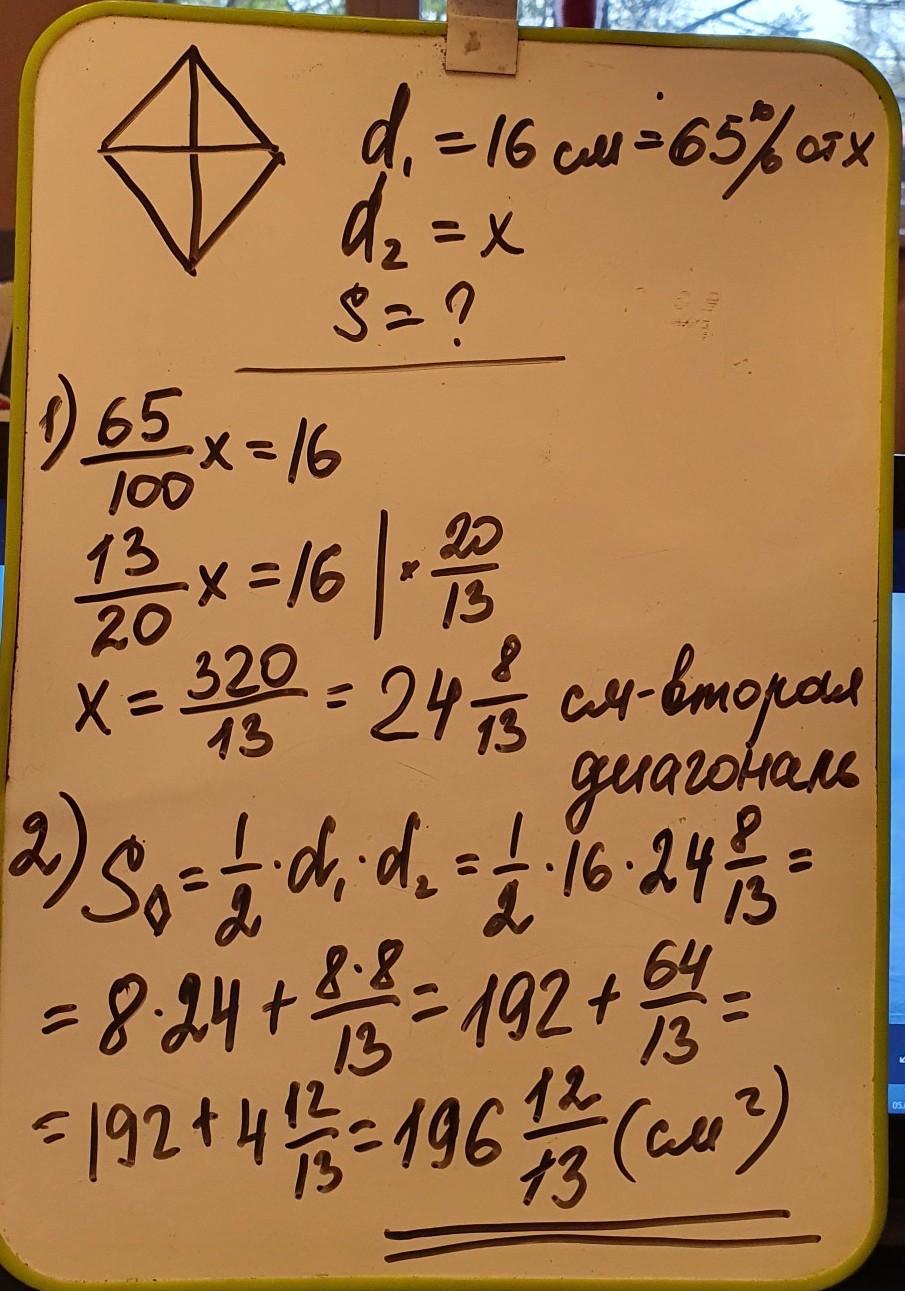 d₁ = 16 см = 65% от x
d₂ = x
S = ?
1) 65/100 x = 16
13/20 x = 16 | × 20/13
x = 320/13 = 24 8/13 см - вторая
диагональ
2) S◊ = 1/2 · d₁ · d₂ = 1/2 · 16 · 24 8/13 =
= 8 · 24 + 8·8/13 = 192 + 64/13 =
= 192 + 4 12/13 = 196 12/13 (см²)